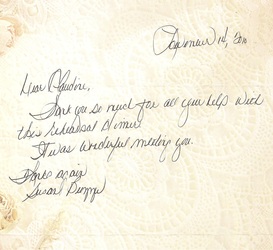 Dear Claudine,
Thank you so much for all your help with
this Rehearsal Dinner
It was wonderful meeting you.
Thanks again
Susan